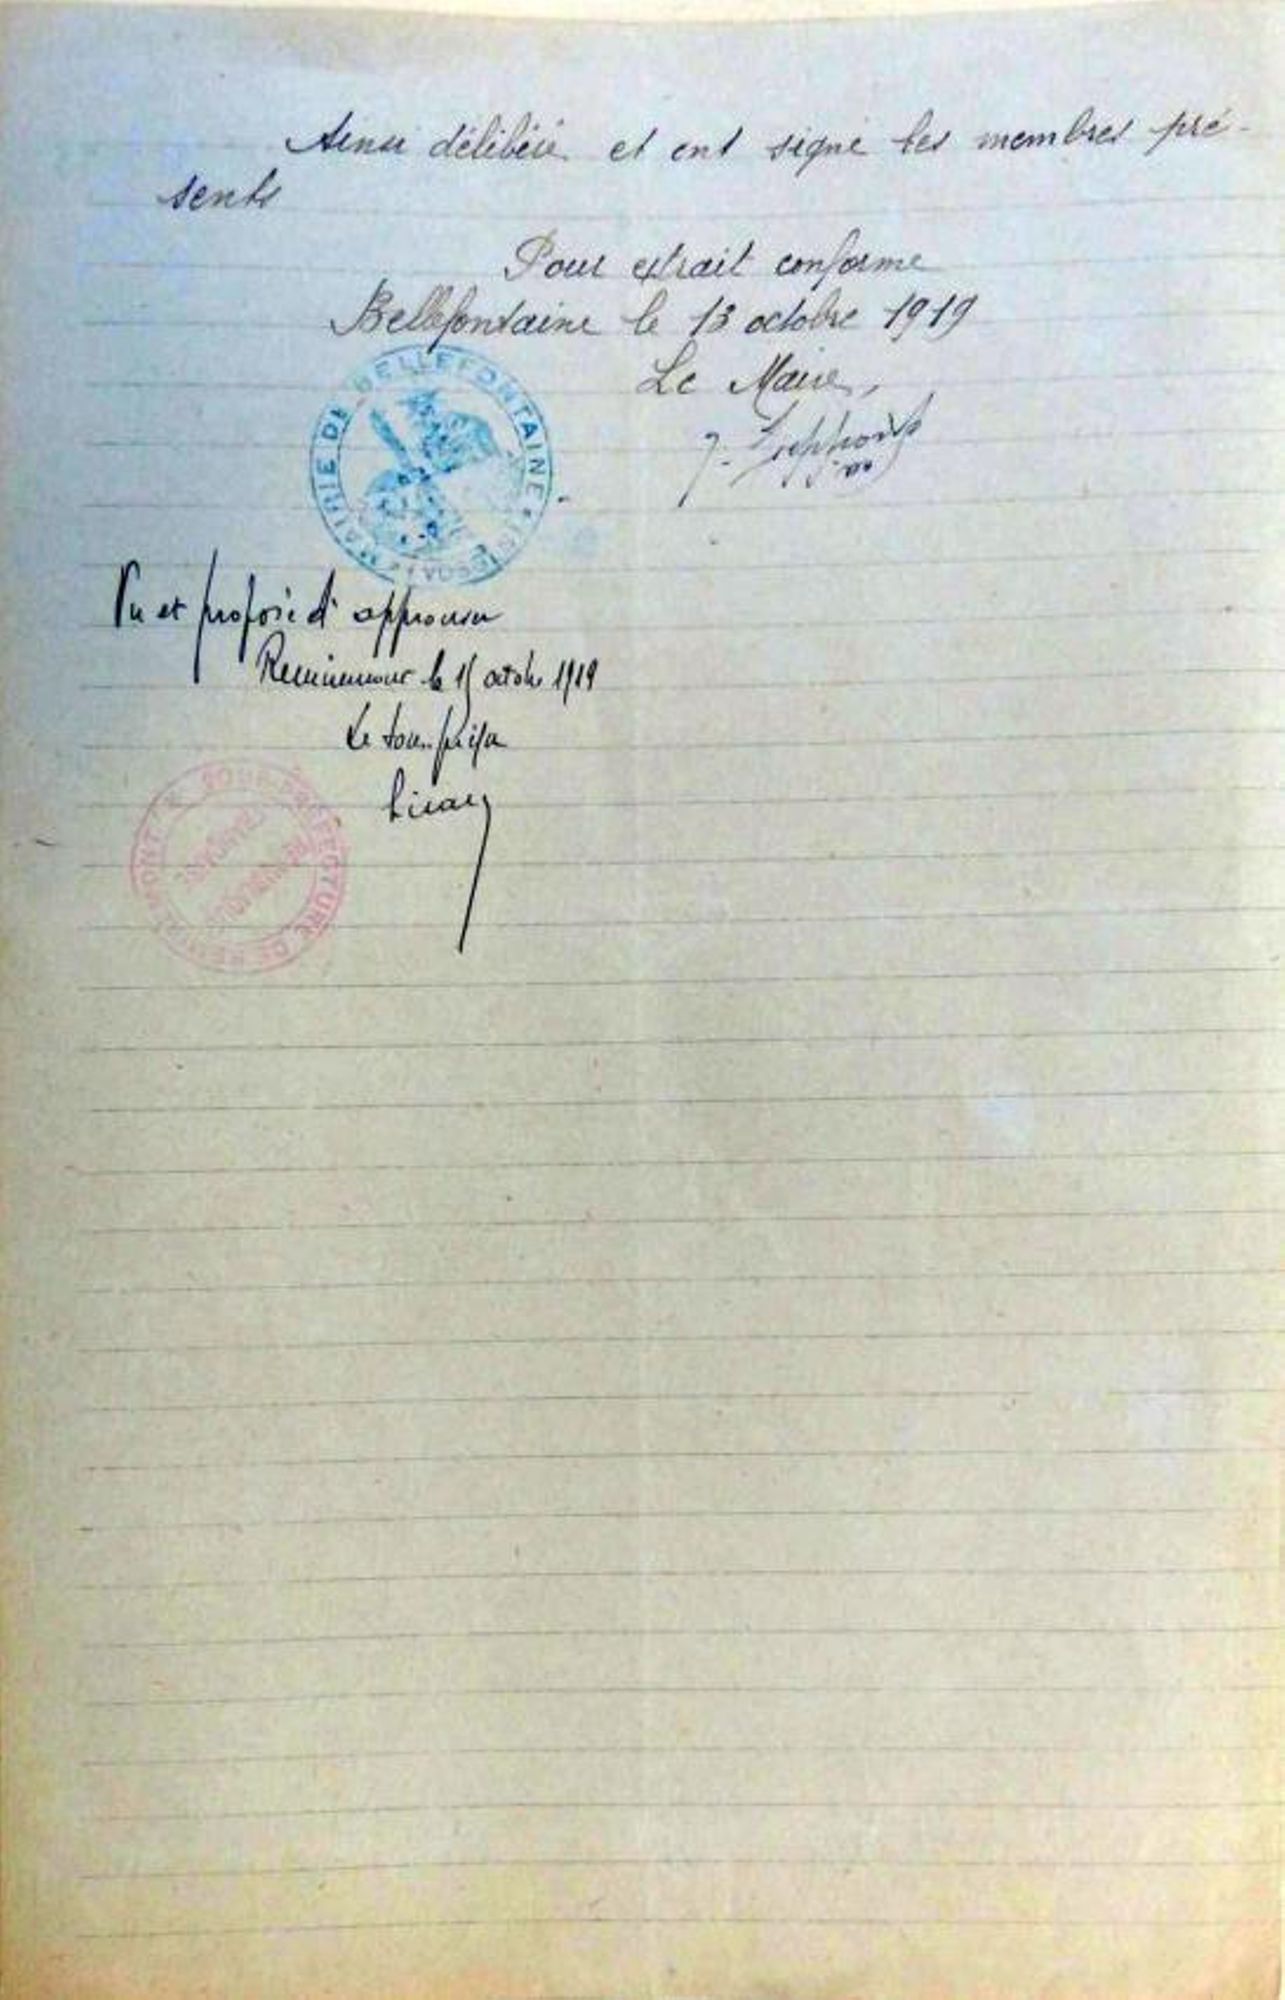 Ainsi délibéré et ont signé les membres pré-
sents
Pour extrait conforme
Bellefontaine le 13 octobre 1919
Le Maire,
J.
MAIRIE DE BELLEFONTAINE * (VOSGES) *
Vu et proposé d'approuver
Remiremont le 15 octobre 1919
Le sous-préfet
SOUS-PRÉFECTURE DE REMIREMONT
RÉPUBLIQUE
FRANÇAISE